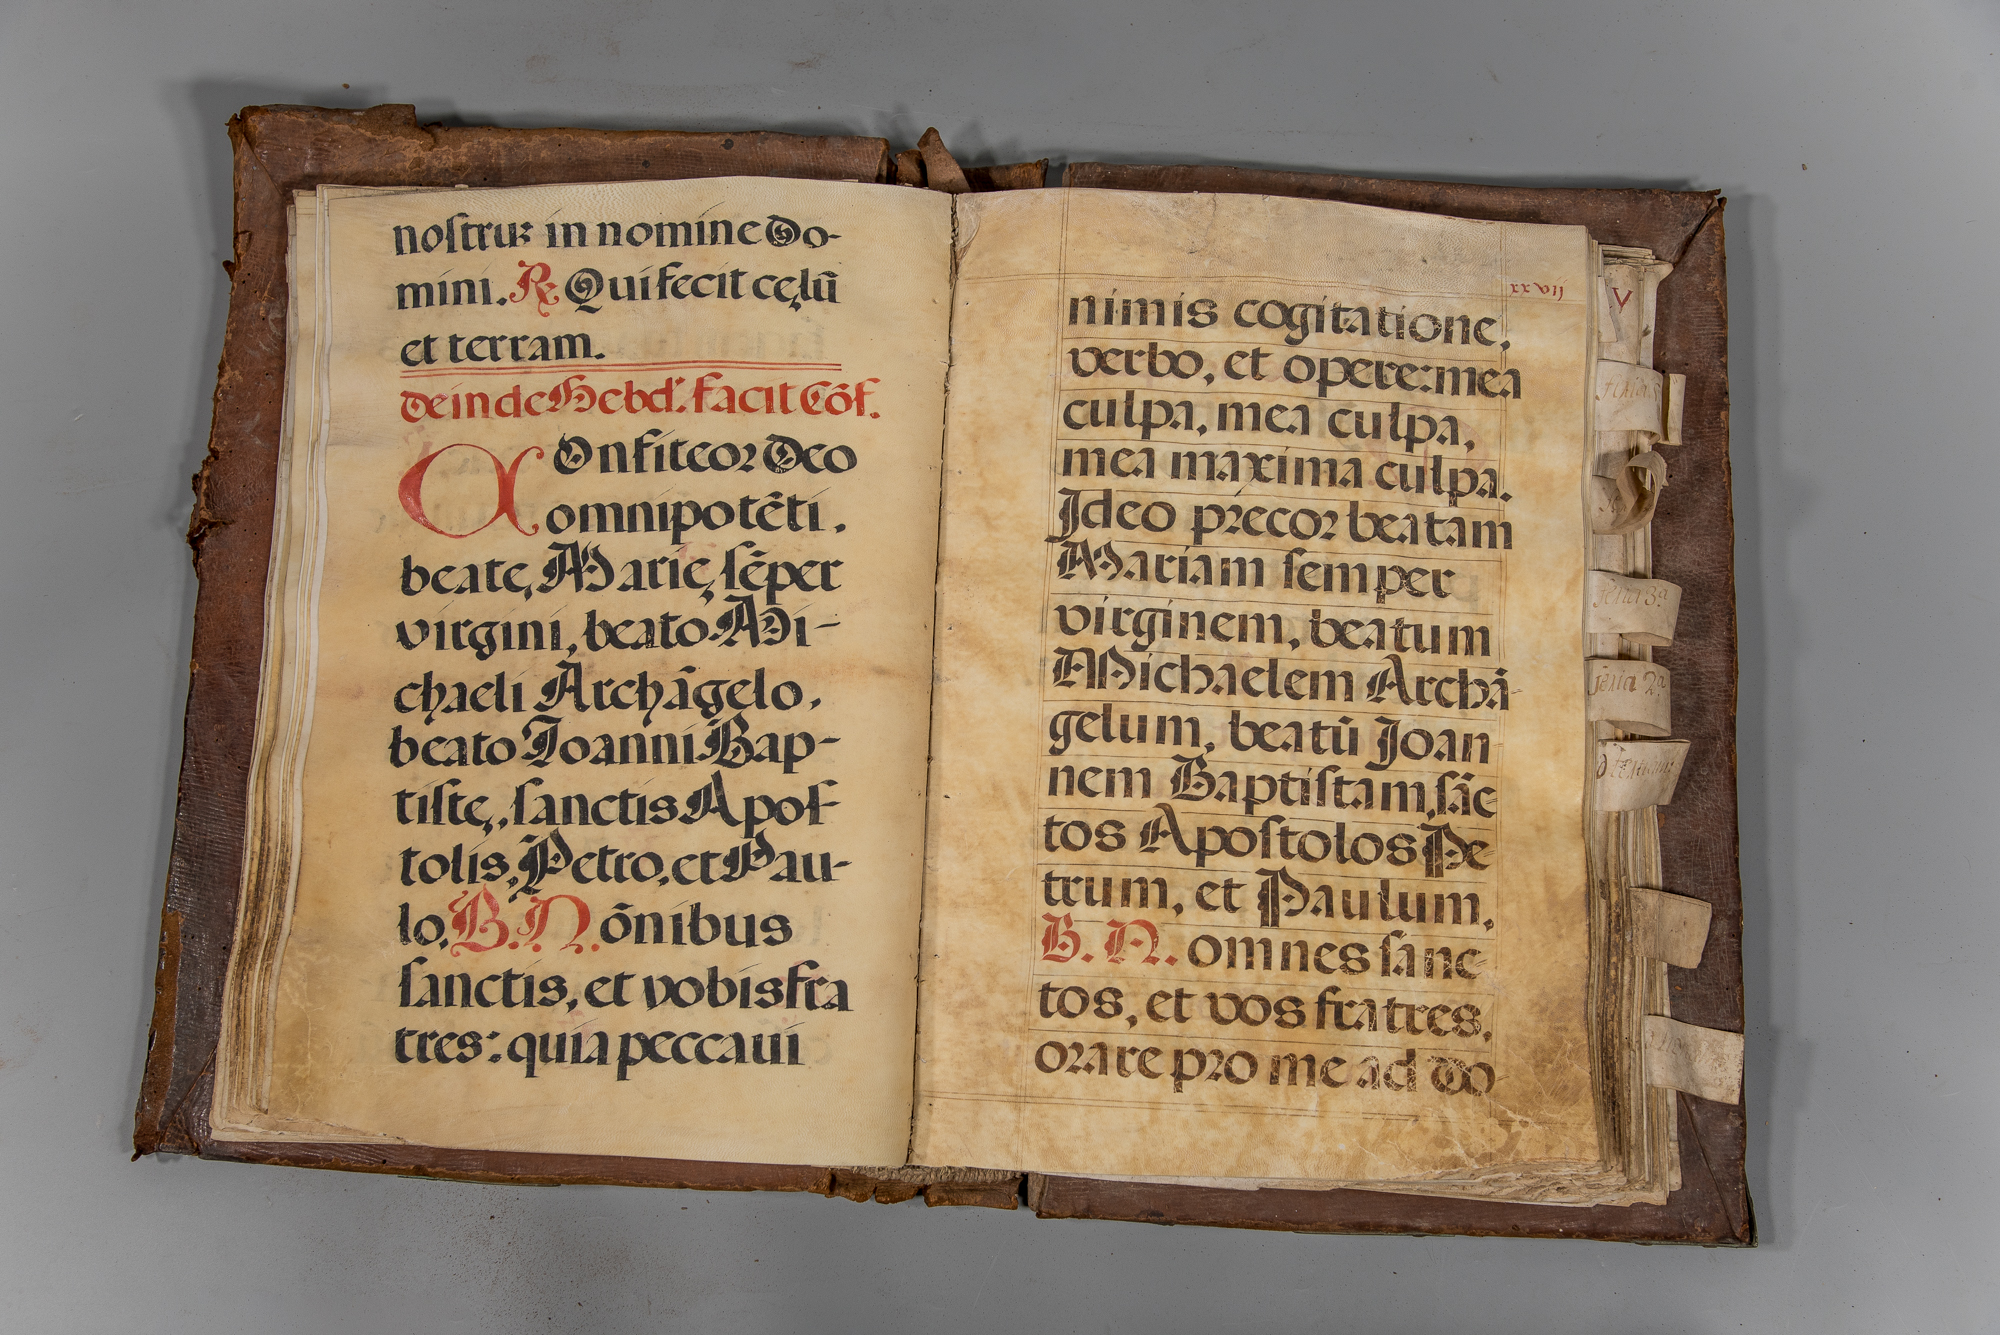 noſtruꝫ in nomine Do-
mini. ℟ Qui fecit cęlũ
et terram.
deinde Hebd. facit Cõf.
COnfiteoꝛ Deo
omnipotẽti,
beatę Marię ſẽper
virgini, beato Mi-
chaeli Archãgelo,
beato Ioanni Bap-
tiſtę, ſanctis Apoſ-
tolis, Petro, et Pau-
lo, B. N. õnibus
ſanctis, et vobis fra
tres: quia peccaui
xxvij
nimis cogitatione,
verbo, et opere: mea
culpa, mea culpa,
mea maxima culpa.
Ideo pꝛecoꝛ beatam
Mariam ſemper
virginem, beatum
Michaelem Archã-
gelum, beatũ Joan
nem Baptiſtam, ſãc
tos Apoſtolos Pe
trum, et Paulum,
B. N. omnes ſanc
tos, et vos fratres,
oꝛare pꝛo me ad Do
V
feria 3ª
feria 2ª